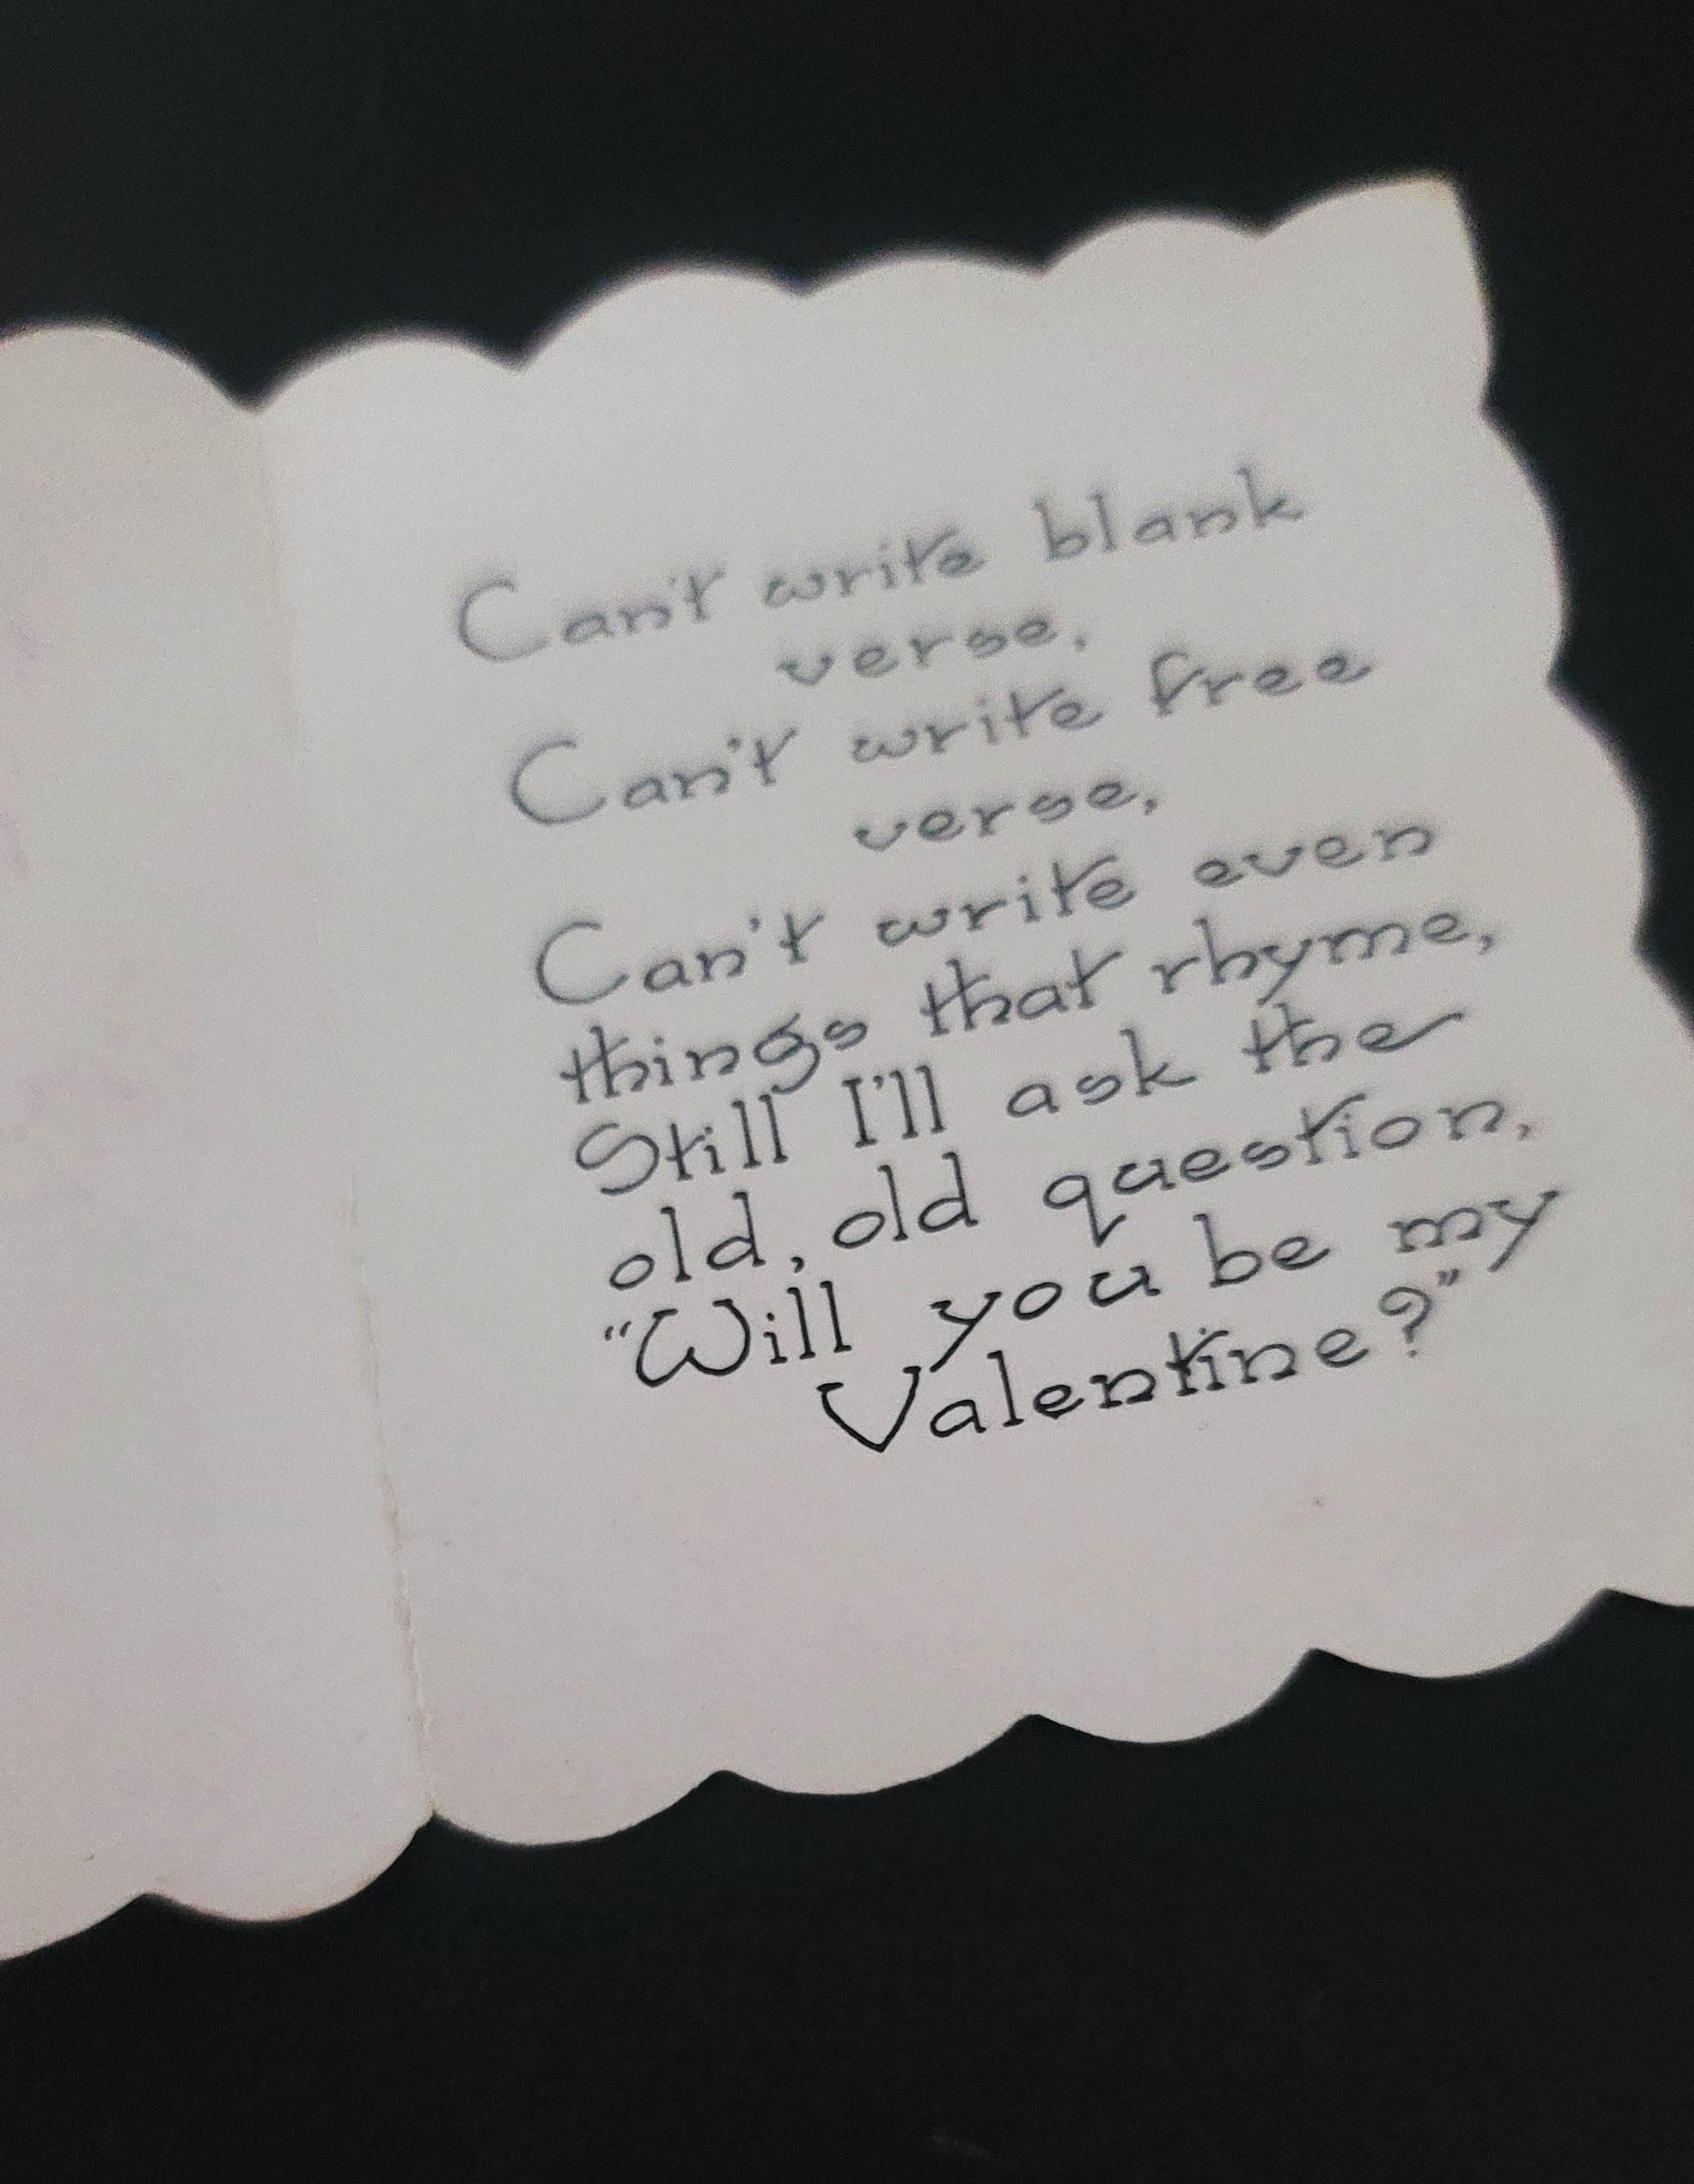 Can't write blank
verse,
Can't write free
verse,
Can't write even
things that rhyme,
Still I'll ask the
old, old question,
"Will you be my
Valentine?"